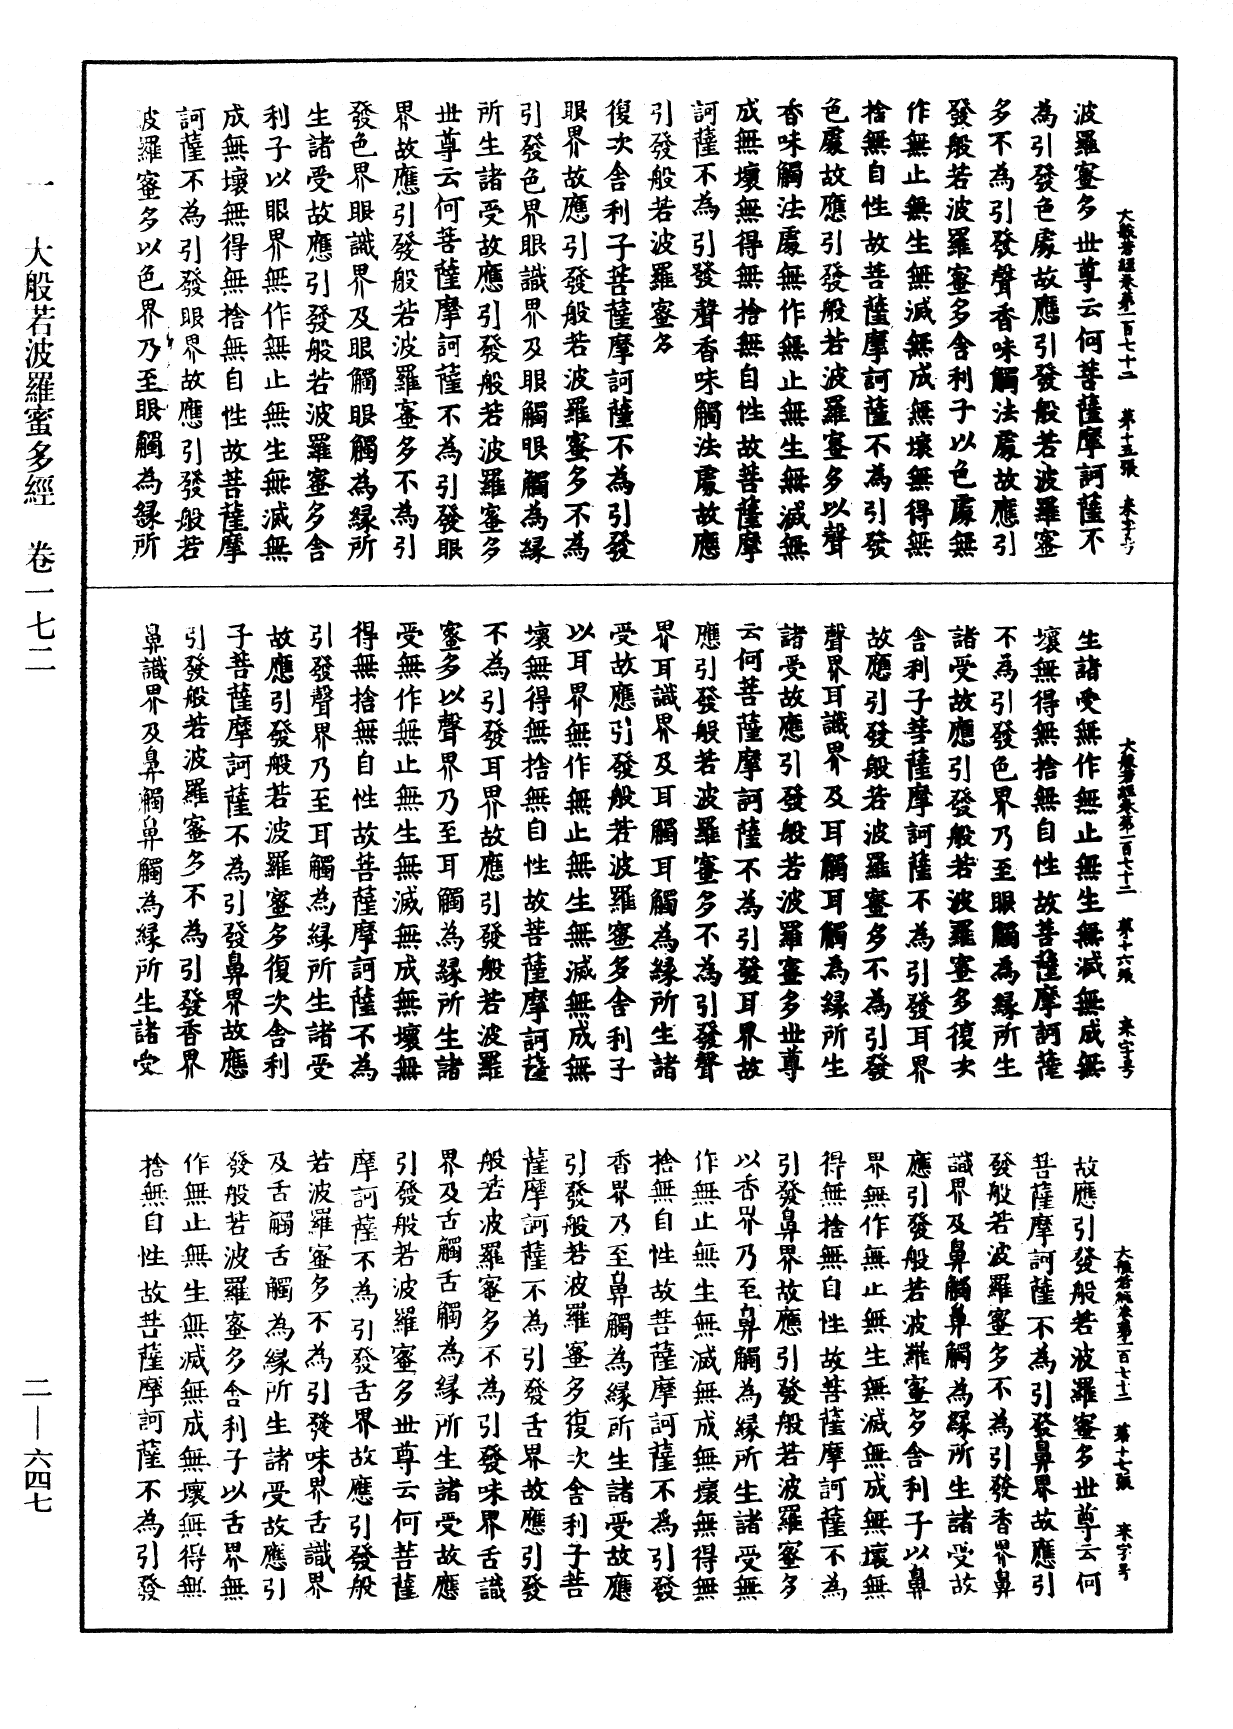 大般若經卷第一百七十二　第十五張　來字号
波羅蜜多世尊云何菩薩摩訶薩不
為引發色處故應引發般若波羅蜜
多不為引發聲香味觸法處故應引
發般若波羅蜜多舍利子以色處無
作無止無生無滅無成無壞無得無
捨無自性故菩薩摩訶薩不為引發
色處故應引發般若波羅蜜多以聲
香味觸法處無作無止無生無滅無
成無壞無得無捨無自性故菩薩摩
訶薩不為引發聲香味觸法處故應
引發般若波羅蜜多
復次舍利子菩薩摩訶薩不為引發
眼界故應引發般若波羅蜜多不為
引發色界眼識界及眼觸眼觸為緣
所生諸受故應引發般若波羅蜜多
世尊云何菩薩摩訶薩不為引發眼
界故應引發般若波羅蜜多不為引
發色界眼識界及眼觸眼觸為緣所
生諸受故應引發般若波羅蜜多舍
利子以眼界無作無止無生無滅無
成無壞無得無捨無自性故菩薩摩
訶薩不為引發眼界故應引發般若
波羅蜜多以色界乃至眼觸為緣所
大般若經卷第一百七十二　第十六張　來字号
生諸受無作無止無生無滅無成無
壞無得無捨無自性故菩薩摩訶薩
不為引發色界乃至眼觸為緣所生
諸受故應引發般若波羅蜜多復次
舍利子菩薩摩訶薩不為引發耳界
故應引發般若波羅蜜多不為引發
聲界耳識界及耳觸耳觸為緣所生
諸受故應引發般若波羅蜜多世尊
云何菩薩摩訶薩不為引發耳界故
應引發般若波羅蜜多不為引發聲
界耳識界及耳觸耳觸為緣所生諸
受故應引發般若波羅蜜多舍利子
以耳界無作無止無生無滅無成無
壞無得無捨無自性故菩薩摩訶薩
不為引發耳界故應引發般若波羅
蜜多以聲界乃至耳觸為緣所生諸
受無作無止無生無滅無成無壞無
得無捨無自性故菩薩摩訶薩不為
引發聲界乃至耳觸為緣所生諸受
故應引發般若波羅蜜多復次舍利
子菩薩摩訶薩不為引發鼻界故應
引發般若波羅蜜多不為引發香界
鼻識界及鼻觸鼻觸為緣所生諸受
大般若經卷第一百七十二　第十七張　來字号
故應引發般若波羅蜜多世尊云何
菩薩摩訶薩不為引發鼻界故應引
發般若波羅蜜多不為引發香界鼻
識界及鼻觸鼻觸為緣所生諸受故
應引發般若波羅蜜多舍利子以鼻
界無作無止無生無滅無成無壞無
得無捨無自性故菩薩摩訶薩不為
引發鼻界故應引發般若波羅蜜多
以香界乃至鼻觸為緣所生諸受無
作無止無生無滅無成無壞無得無
捨無自性故菩薩摩訶薩不為引發
香界乃至鼻觸為緣所生諸受故應
引發般若波羅蜜多復次舍利子菩
薩摩訶薩不為引發舌界故應引發
般若波羅蜜多不為引發味界舌識
界及舌觸舌觸為緣所生諸受故應
引發般若波羅蜜多世尊云何菩薩
摩訶薩不為引發舌界故應引發般
若波羅蜜多不為引發味界舌識界
及舌觸舌觸為緣所生諸受故應引
發般若波羅蜜多舍利子以舌界無
作無止無生無滅無成無壞無得無
捨無自性故菩薩摩訶薩不為引發
一　大般若波羅蜜多經　卷一七二
二—六四七